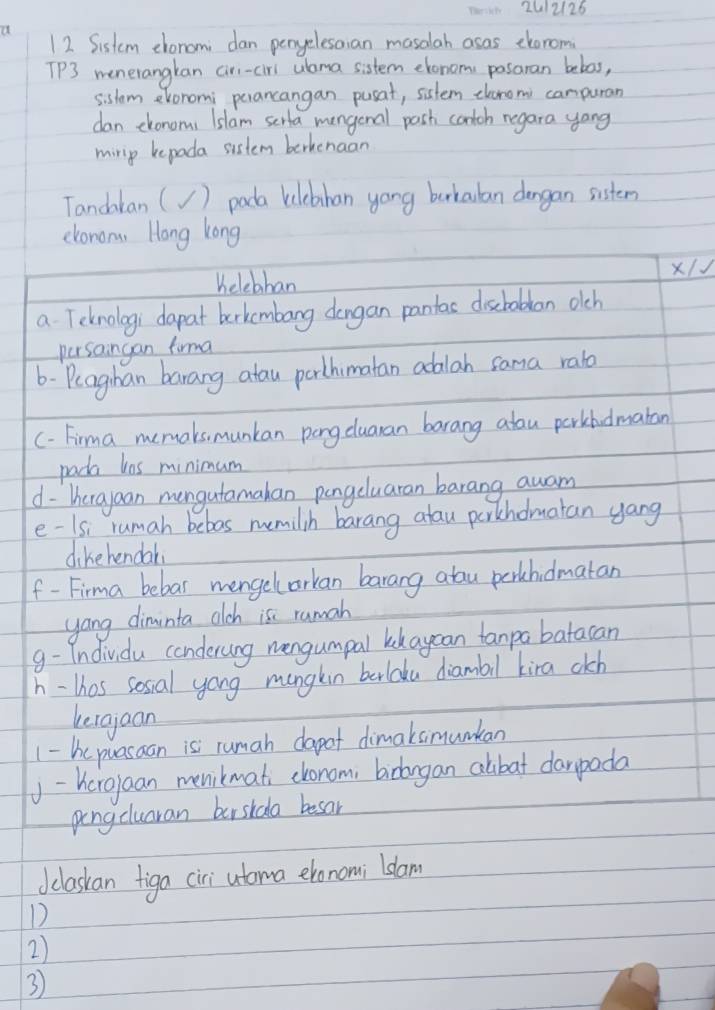 24/2/26
1 2 Sistem ekonomi dan penyelesaian masalah asas ekonomi
TP3 menerangkan ciri-ciri utama sistem ekonomi pasaran bebas,
sistem ekonomi perancangan pusat, sistem ekonomi campuran
dan ekonomi Islam serta mengenal pasti contoh negara yang
mirip kepada sistem berkenaan
Tandakan (✓) pada kelebihan yang berkaitan dengan sistem
ekonomi Hong kong
Kelebihan
X/✓
a- Teknologi dapat berkembang dengan pantas disebabkan oleh
persaingan firma
b- Peagihan barang atau perkhimatan adalah sama rata
c- Firma memaksimunkan pengeluaran barang atau perkhidmatan
pada kos minimum
d- Kerajaan mengutamakan pengeluaran barang awam
e- Isi rumah bebas memilih barang atau perkhdmatan yang
dikehendaki
f- Firma bebas mengeluarkan barang atau perkhidmatan
yang diminta oleh isi rumah
g- Individu cenderung mengumpal kekayaan tanpa batasan
h- Kos sosial yang mungkin berlaku diambil kira oleh
kerajaan
i- Kepuasaan isi rumah dapat dimaksimumkan
j- Kerajaan menikmati ekonomi bidangan akibat daripada
pengeluaran berskala besar
Jelaskan tiga ciri utama ekonomi Islam
1)
2)
3)